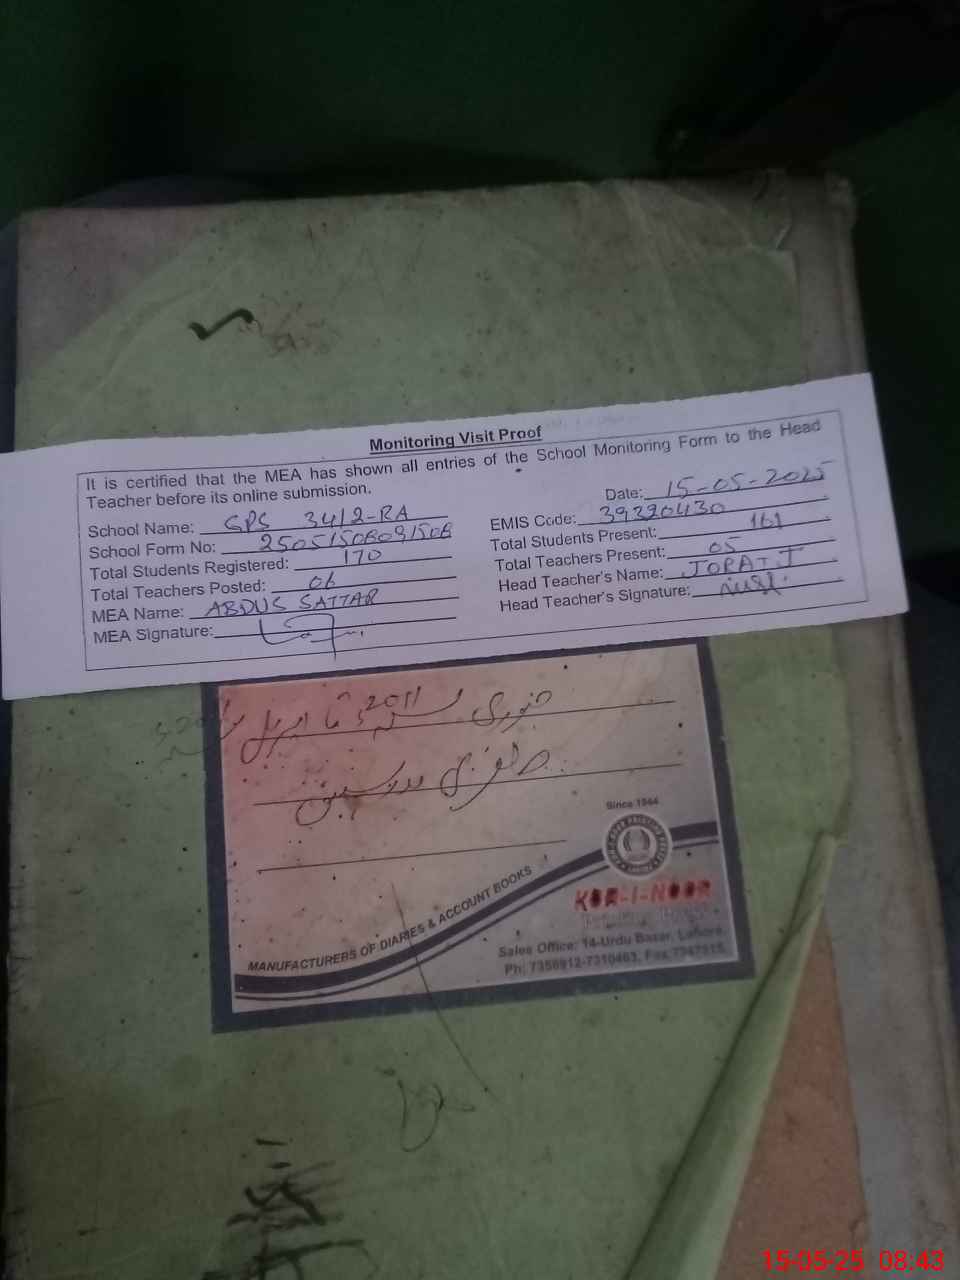 Monitoring Visit Proof
It is certified that the MEA has shown all entries of the School Monitoring Form to the Head
Teacher before its online submission.
Date: 15-05-2025
School Name: GPS 34/2-RA
EMIS Code: 39320430
School Form No: 25051508091508
Total Students Present: 161
Total Students Registered: 170
Total Teachers Present: 05
Total Teachers Posted: 06
Head Teacher's Name:
MEA Name: ABDUS SATTAR
Head Teacher's Signature:
MEA Signature:
جنوری 2011ء تا اپریل
حاضری مدرسین
Since 1944
KOH-I-NOOR
MANUFACTURERS OF DIARIES & ACCOUNT BOOKS
Sales Office: 14-Urdu Bazar, Lahore.
Ph: 7356912-7310463, Fax:
15-05-25 08:43